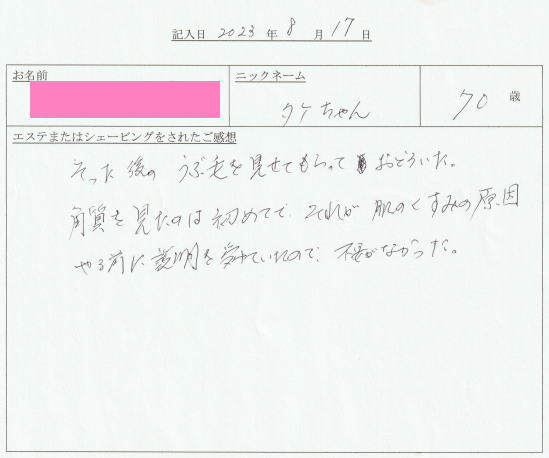 記入日 2023 年 8 月 17 日
お名前
ニックネーム
タケちゃん
70 歳
エステまたはシェービングをされたご感想
そった後の うぶ毛を見せてもらって おどろいた。
角質を見たのは初めてで、それが 肌のくすみの原因
やる前に説明を受けていたので、不安がなかった。